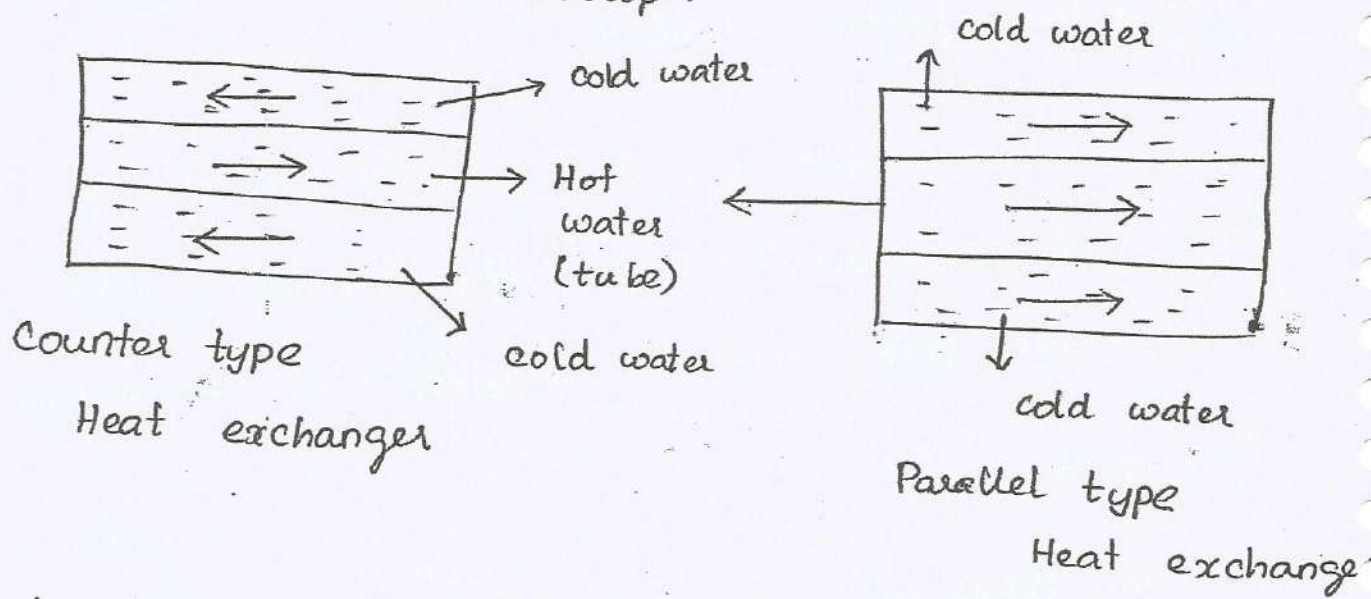 cold water
Hot
water
(tube)
cold water
Counter type
Heat exchanger
cold water
cold water
Parallel type
Heat exchange